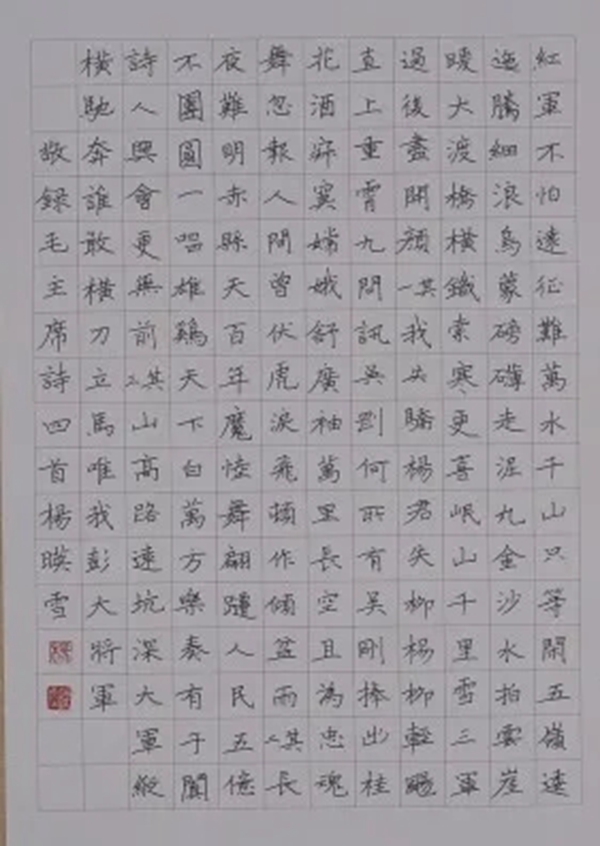 紅軍不怕遠征難萬水千山只等閑五嶺逶
迤騰細浪烏蒙磅礴走泥丸金沙水拍雲崖
暖大渡橋橫鐵索寒更喜岷山千里雪三軍
過後盡開顏其一我失驕楊君失柳楊柳輕颺
直上重霄九問訊吳剛何所有吳剛捧出桂
花酒寂寞嫦娥舒廣袖萬里長空且為忠魂
舞忽報人間曾伏虎淚飛頓作傾盆雨其二長
夜難明赤縣天百年魔怪舞翩躚人民五億
不團圓一唱雄鷄天下白萬方樂奏有于闐
詩人興會更無前其三山高路遠坑深大軍縱
橫馳奔誰敢橫刀立馬唯我彭大將軍
敬錄毛主席詩四首楊暎雪